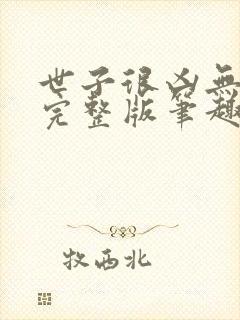 世子很凶無
完整版笔趣
牧西北